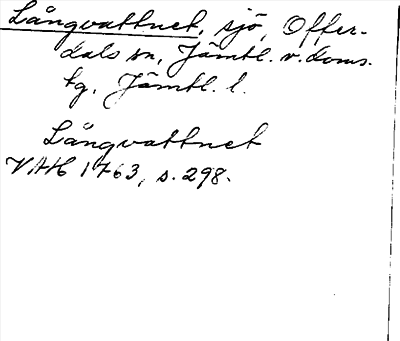 Långvattnet, sjö, Offer-
dals sn, Jämtl. v. doms.
tg, Jämtl. l.
Långvattnet
VAH 1763, s. 298.